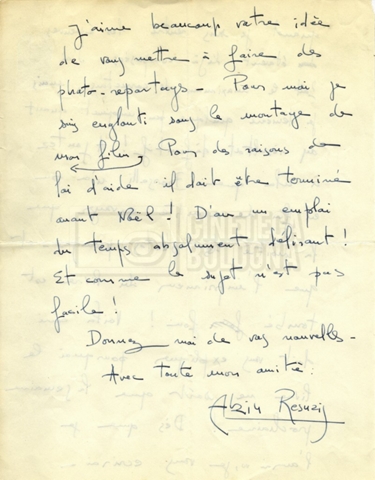 J'aime beaucoup votre idée
de vous mettre à faire des
photo-reportages - Pour moi je
suis englouti sous le montage de
mon film. Pour des raisons de
loi d'aide il doit être terminé
avant Noël! D'où un emploi
du temps absolument délirant!
Et comme le sujet n'est pas
facile!
Donnez moi de vos nouvelles -
Avec toute mon amitié.
Alain Resnais
CINETECA
BOLOGNA